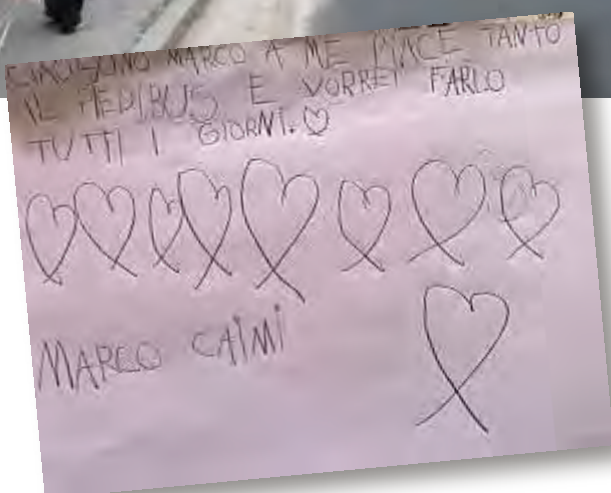 CIAO SONO MARCO A ME PIACE TANTO
IL PEDIBUS E VORREI FARLO
TUTTI I GIORNI.
MARCO CAIMI